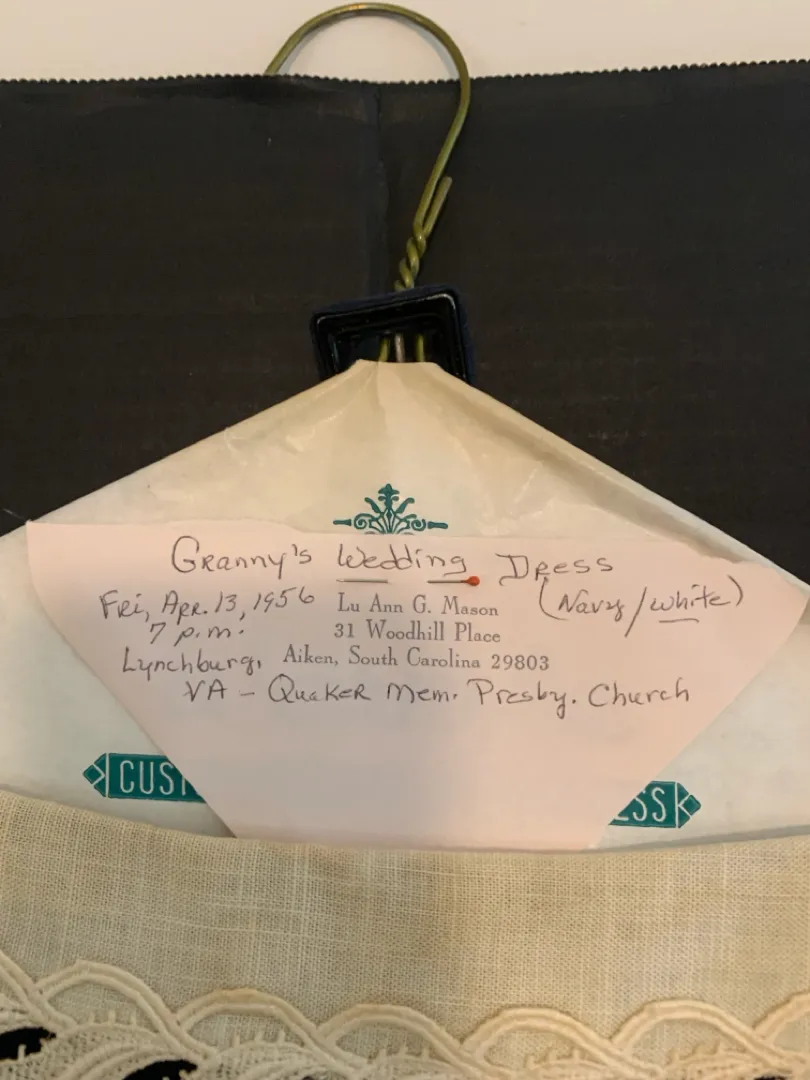 Granny's Wedding Dress
(Navy/white)
Fri, Apr. 13, 1956
7 p.m.
Lu Ann G. Mason
31 Woodhill Place
Aiken, South Carolina 29803
Lynchburg,
VA - Quaker Mem. Presby. Church
CUST
ESS